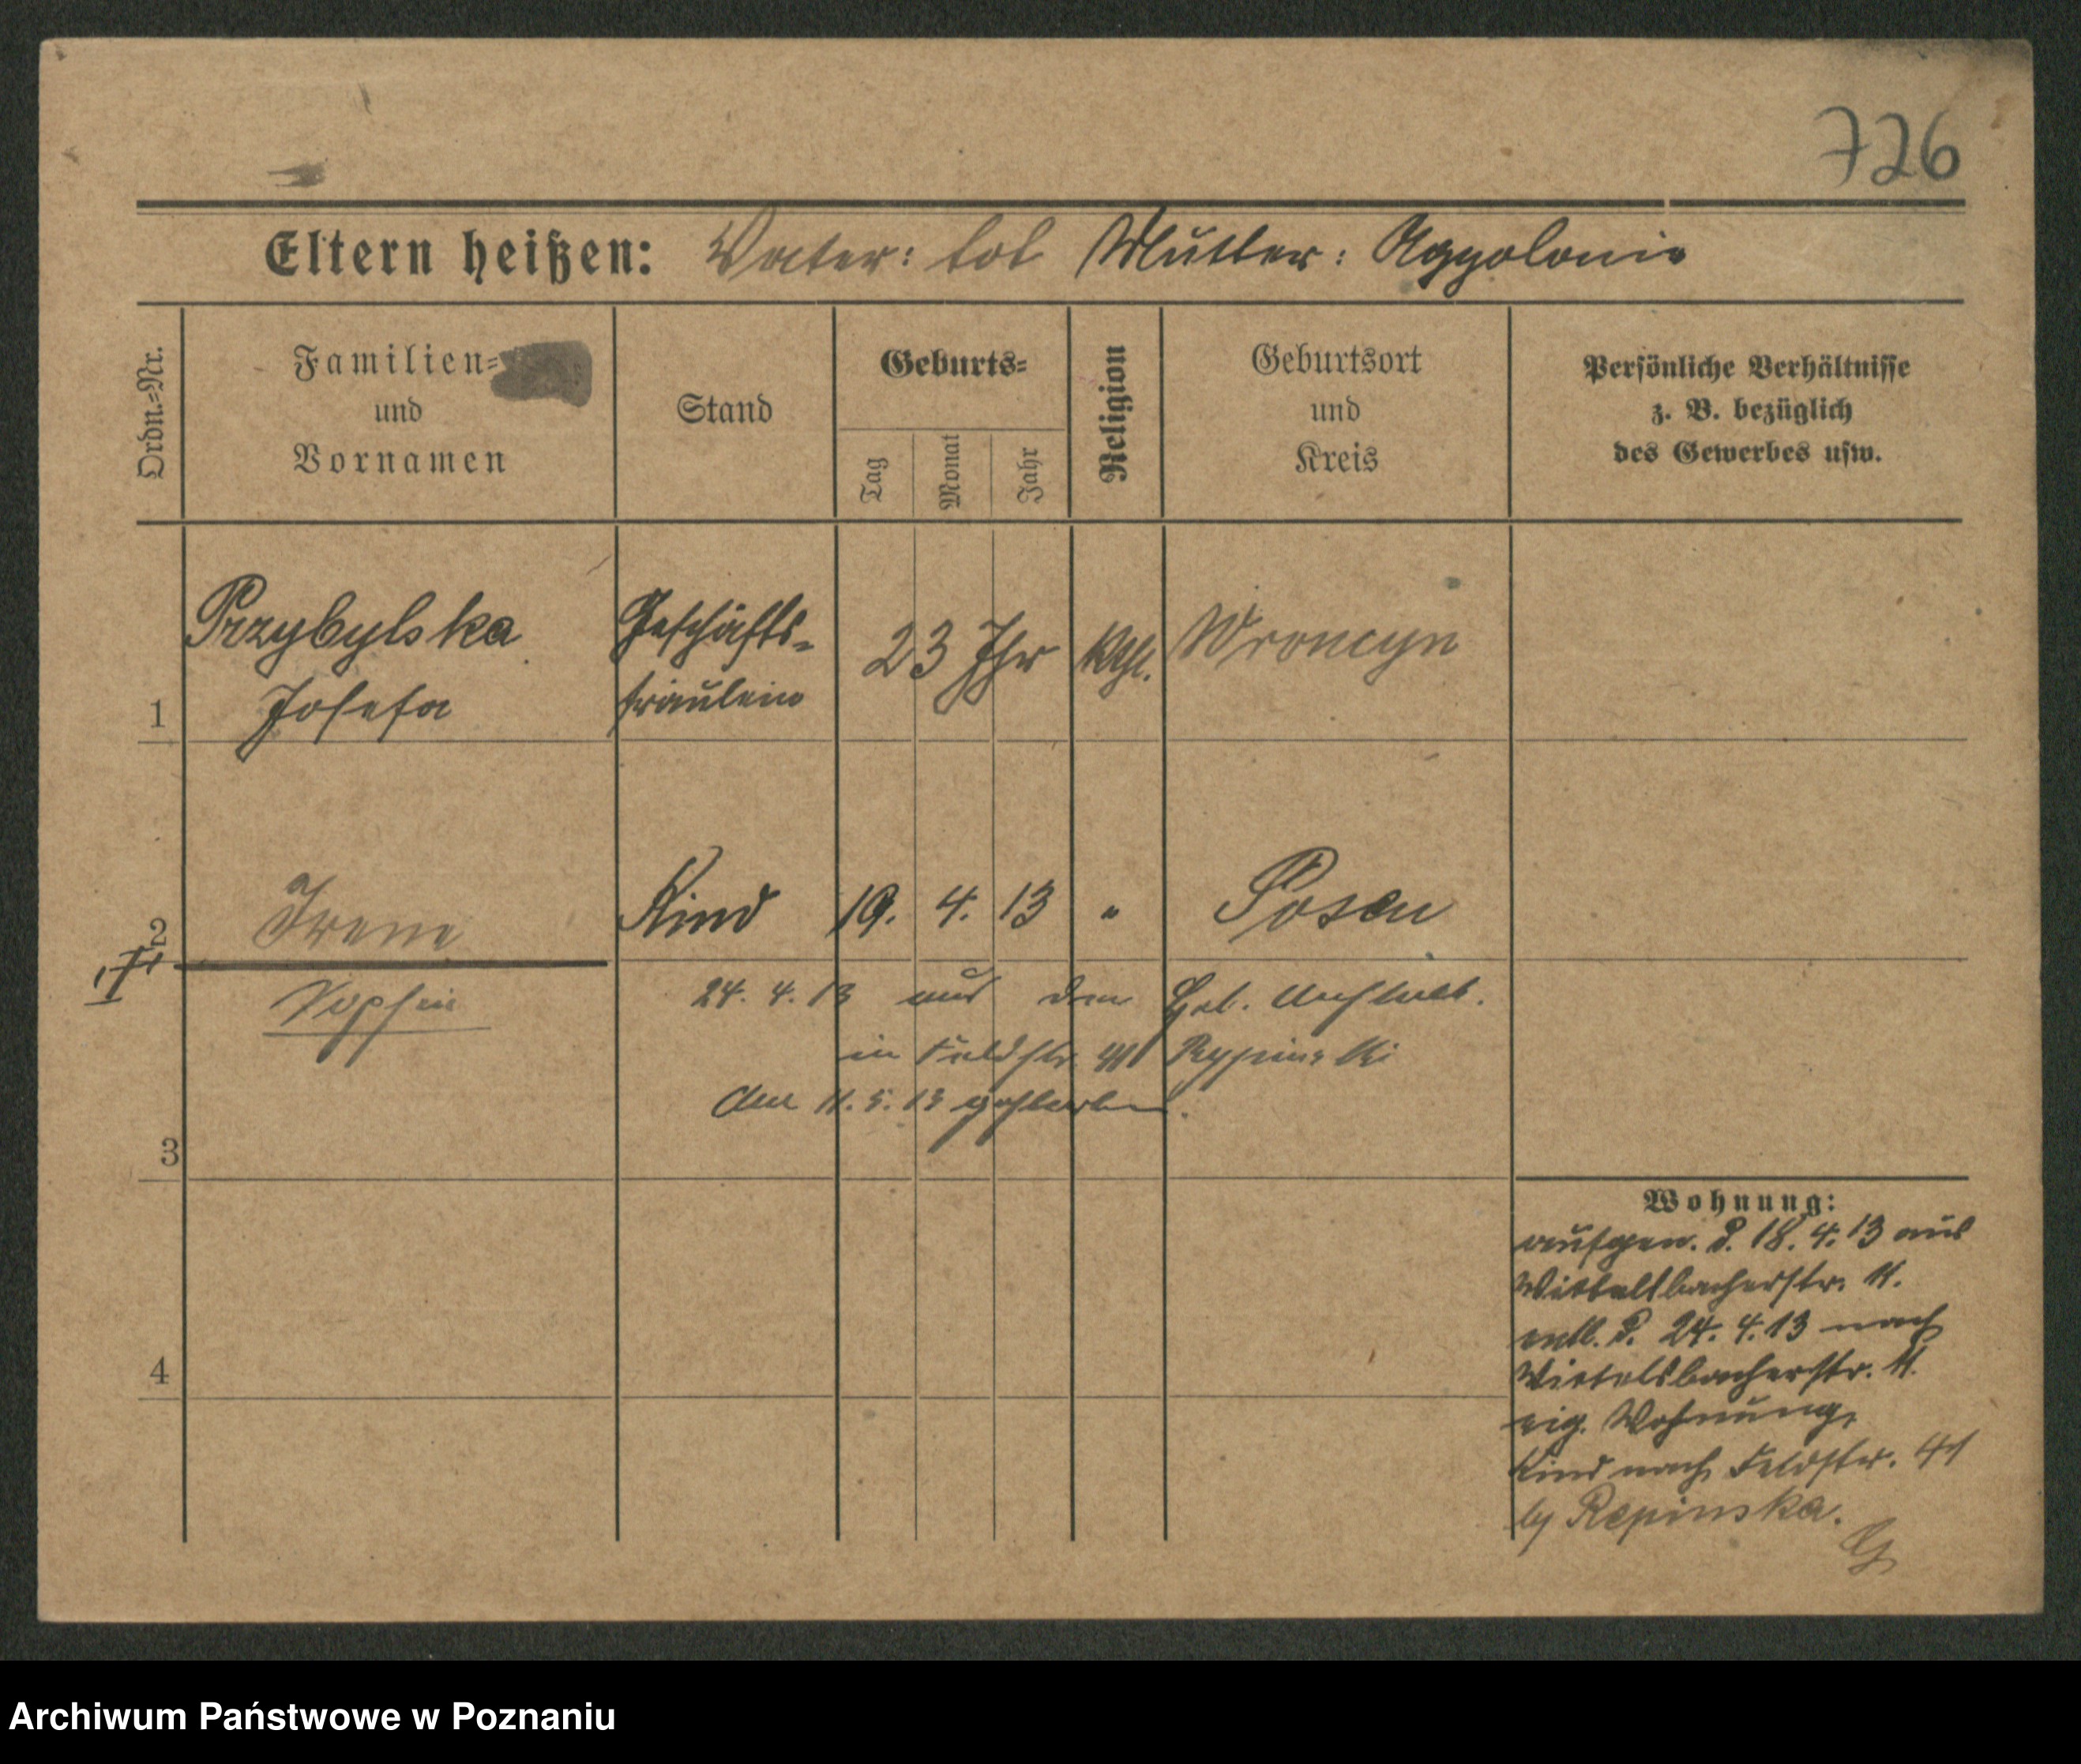 726
Eltern heißen: Vater: tot Mutter: Appolonie
Ordn.-Nr.
Familien-
und
Vornamen
Stand
Geburts-
Tag
Monat
Jahr
Religion
Geburtsort
und
Kreis
Persönliche Verhältnisse
z. B. bezüglich
des Gewerbes usw.
1
Przybylska
Josefa
Geschäfts-
fräulein
23 Jhr
kth.
Wronczyn
2
Irene
Kind
19. 4. 13
"
Posen
24. 4. 13 aus der Heb. Anstalt.
in Feldstr. 41 Rypinski
Am 11. 5. 13 gestorben.
3
4
Wohnung:
aufgen. d. 18. 4. 13 aus
Wittelsbacherstr. 11.
entl. d. 24. 4. 13 nach
Wittelsbacherstr. 11.
eig. Wohnung,
Kind nach Feldstr. 41
by Repinska.
Archiwum Państwowe w Poznaniu